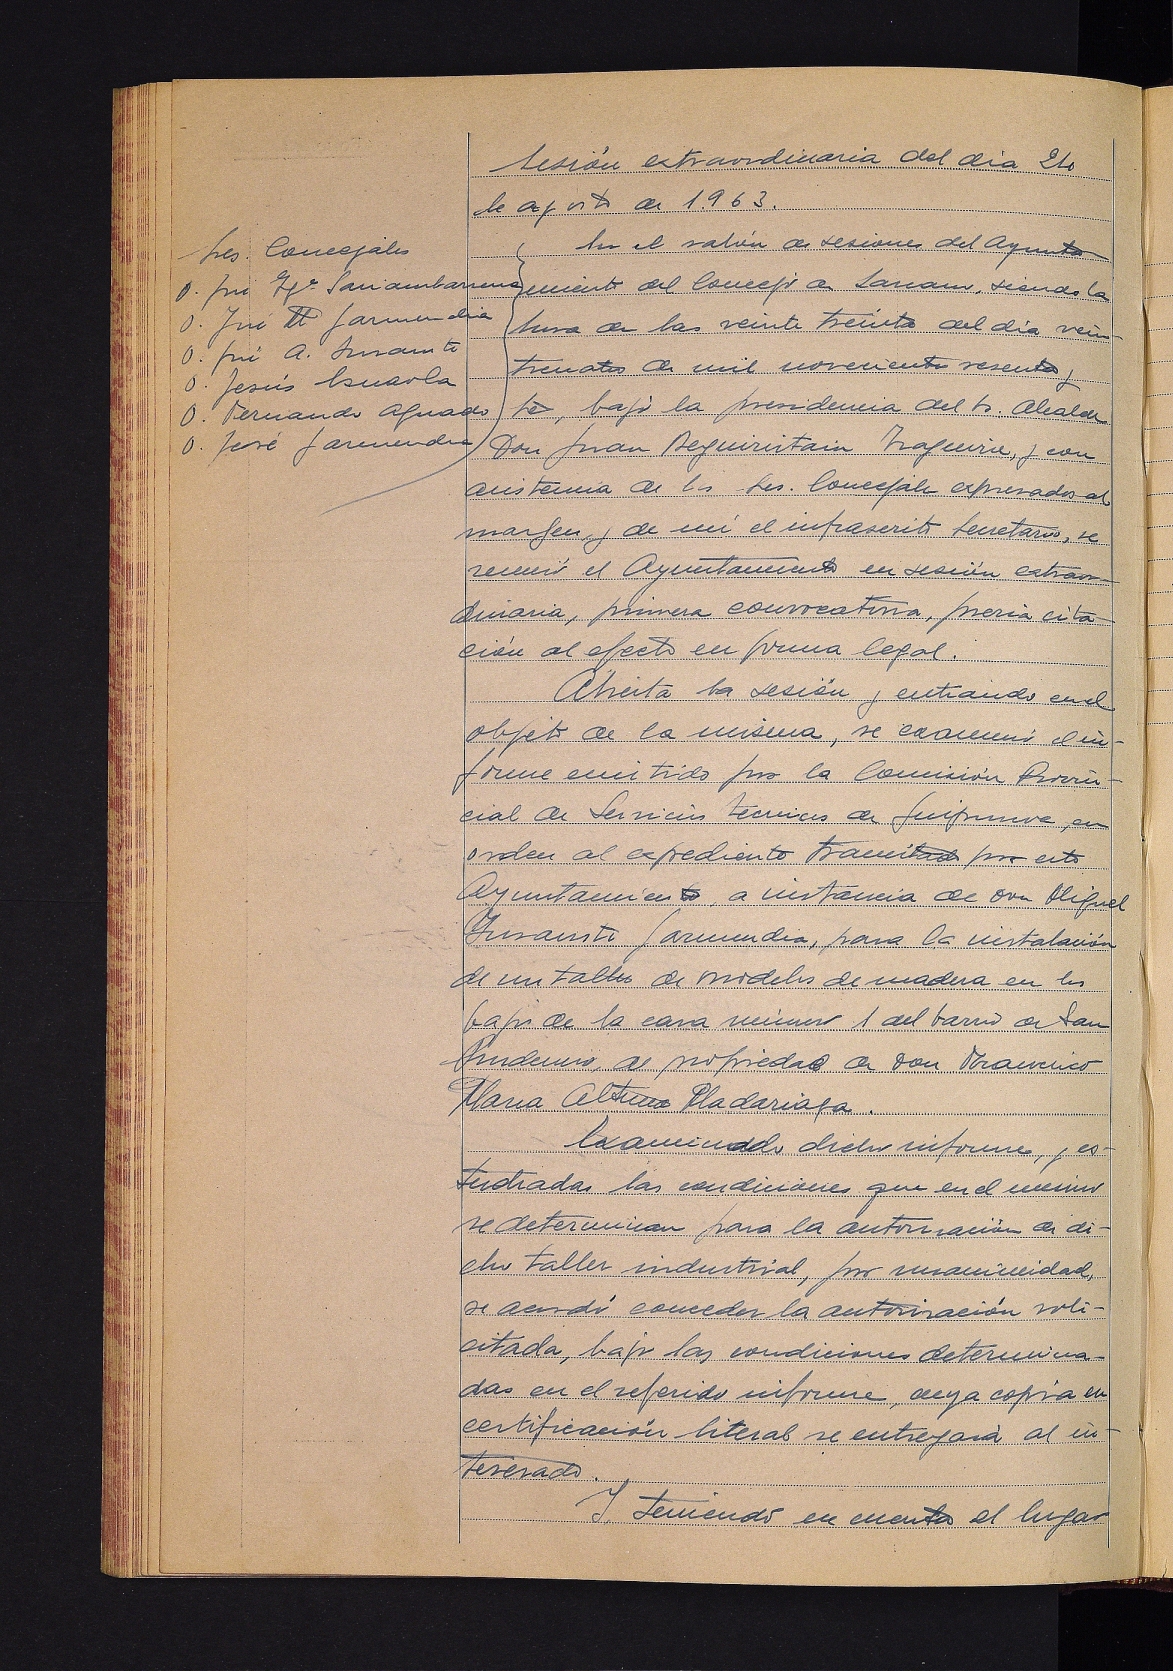 Sesión extraordinaria del dia
de agosto de 1.963.
Sres. Concejales
D. José Mª Garmendia
D. José A. Insausti
D. Jesús Esnaola
D. Fernando Aguado
D. José Garmendia
En el salón de sesiones del Ayunta
miento del Concejo de siendo la
hora de las veinte treinta del dia vein-
de mil novecientos sesenta y
bajo la presidencia del Sr. Alcalde
Don Juan Beguiristain y con
asistencia de los Sres. Concejales expresados al
margen, y de mi el infrascrito Secretario, se
reunió el Ayuntamiento en sesión extraor-
dinaria, primera convocatoria, previa cita-
ción al efecto en forma legal.
Abierta la sesión y entrando en el
objeto de la misma, se examinó el in-
forme emitido por la Comisión Provin-
cial de Servicios Tecnicos de Guipuzcoa, en
orden al expediente tramitado por este
Ayuntamiento, a instancia de Don Miguel
Insausti Garmendia, para la instalación
de un taller de modelos de madera en los
bajos de la casa número 1 del barrio de San
Prudencio, de propiedad de Don Francisco
Maria Altuna Madariaga.
Examinado dicho informe, y es-
tudiadas las condiciones que en el mismo
se determinan para la autorización de di-
cho taller industrial, por unanimidad,
se acordó conceder la autorización soli-
citada, bajo las condiciones determina-
das en el referido informe, cuya copia en
certificación literal se entregará al in-
teresado.
Y teniendo en cuenta el lugar